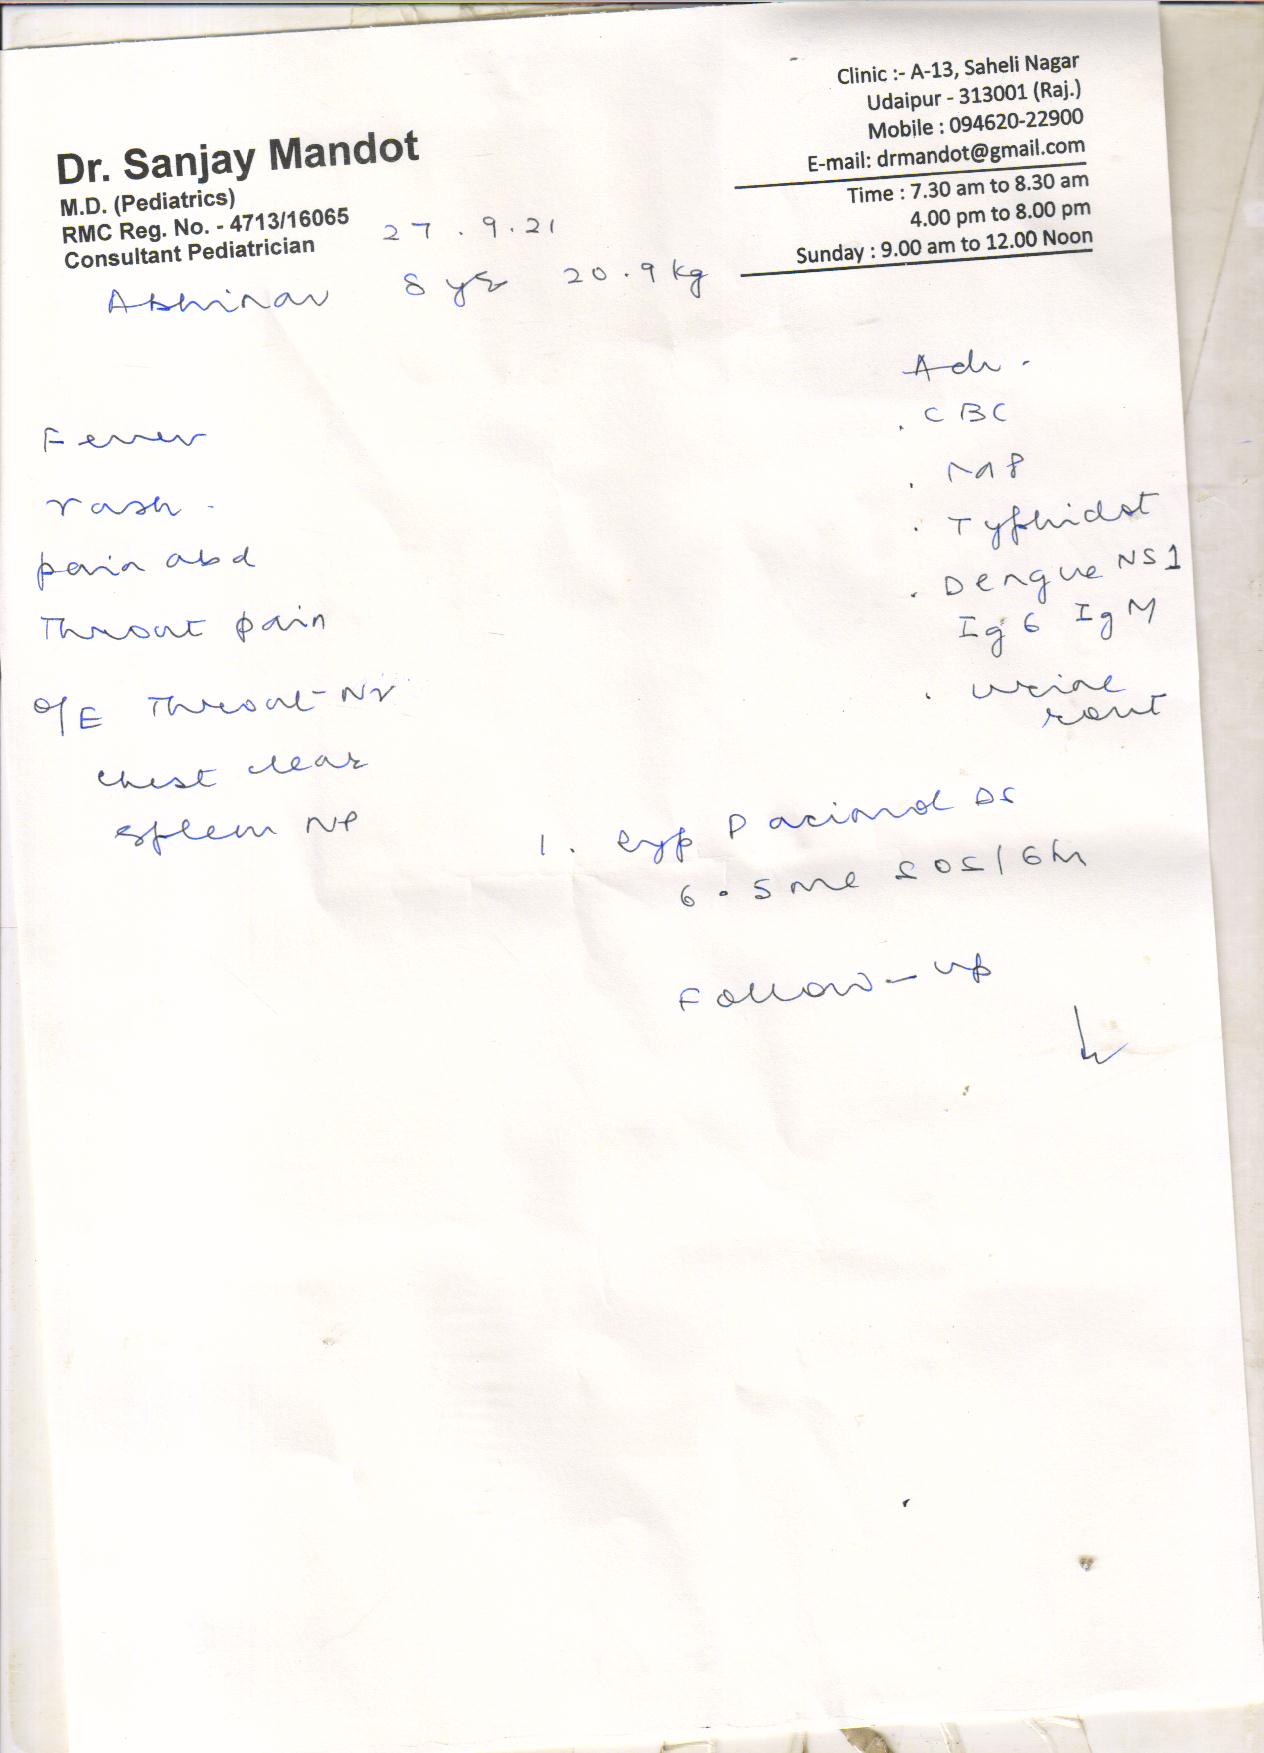 Dr. Sanjay Mandot
M.D. (Pediatrics)
RMC Reg. No. - 4713/16065
Consultant Pediatrician
Clinic :- A-13, Saheli Nagar
Udaipur - 313001 (Raj.)
Mobile : 094620-22900
E-mail: drmandot@gmail.com
Time : 7.30 am to 8.30 am
4.00 pm to 8.00 pm
Sunday : 9.00 am to 12.00 Noon
27.9.21
Abhinav 8 yrs 20.9 kg
Fever
rash.
pain abd
Throat pain
O/E Throat - Nr
chest clear
spleen NP
Adv.
. CBC
. MP
. Typhidot
. Dengue NS1
IgG IgM
. urine
rout
1. syp Pacimol DS
6.5 ml SOS/6hr
Follow-up